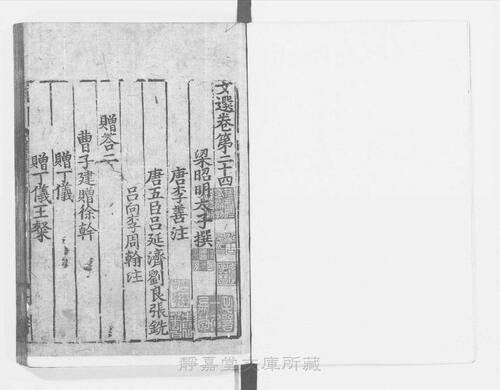 文選卷第二十四
梁昭明太子撰
唐李善注
唐五臣呂延濟劉良張銑
呂向李周翰注
贈荅二
曹子建贈徐幹
贈丁儀
贈丁儀王粲
靜嘉堂文庫所藏